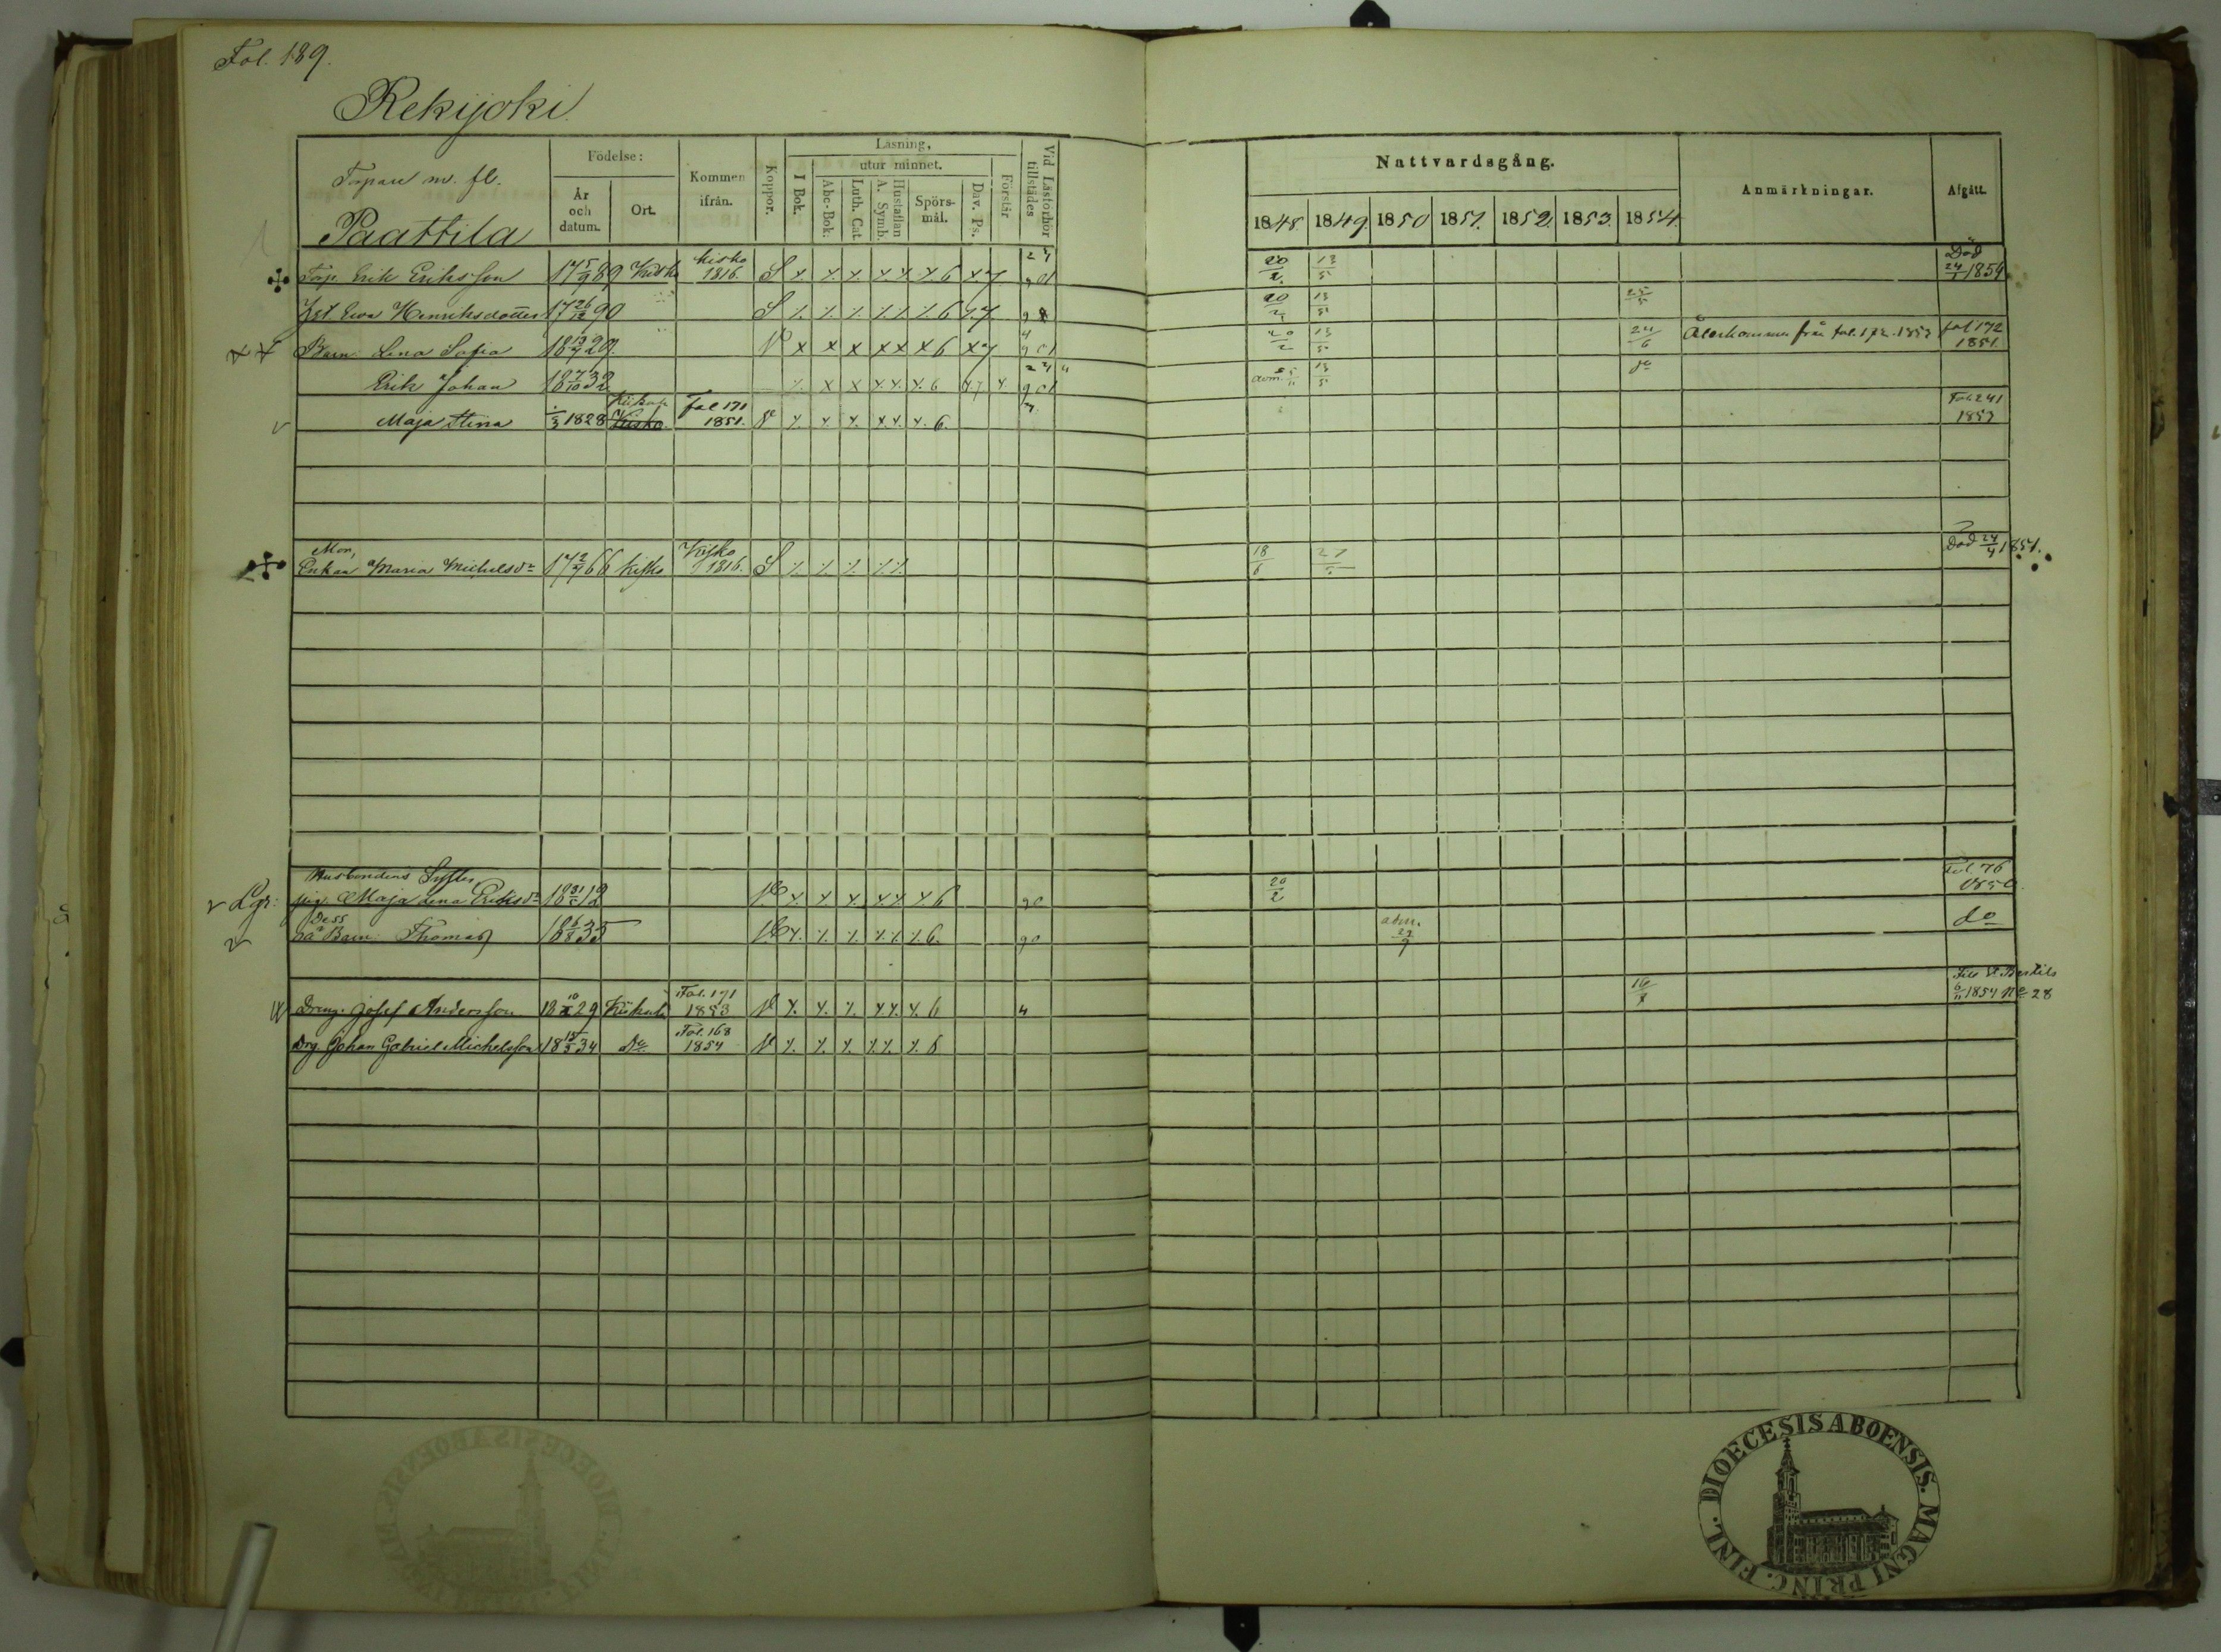 Fol. 189.
Rekijoki
Torpare m. fl.
Paattila
Födelse:
År och datum.
Ort.
Kommen ifrån.
Koppor.
Läsning,
utur minnet.
I Bok.
Abc-Bok.
Luth. Cat.
Hustaflan A. Symb.
Spörs-mål.
Dav. Ps.
Förstår
Vid Läsförhör tillstädes
Nattvardsgång.
1848. 1849. 1850 1851. 1852. 1853. 1854.
Anmärkningar.
Afgått.
Torp. Erik Eriksson 17 5/9 89 Kisko Kisko 1816. S x x x x x x 6 x 7 20/2 13/5 Död 24/1 1854
Hst Eva Henriksdotter 17 26/12 90 S 6 7 20/2 13/5 25/5
Barn: Lena Sofia 18 13/7 29 V x x x x x x 6 x 7 20/2 13/5 24/6 Återkommen från fol. 172. 1853 fol 172 1851.
Erik Johan 18 7/10 32 x x x x x 6 adm. 13/5 do
Maja Stina 1/3 1828 Kiikala Kisko fol 171 1851. V 6. Fol. 241 1853
Mor,
Enkan Maria Michelsdr 17 2/7 66 Kisko Kisko 1816. S 18/6 Död 24/4 1854.
Husbondens Syster
Lgr: pig. Maja Lena Eriksdr 18 31/5 12 6 20/2 Fol. 76 1850
Dess
oä Barn: Thomas 18 6/8 35 6. adm. do
Dräng. Josef Andersson 18 10/x 29 Kiikala Fol. 171 1853 V 6 Till St Bertils 6/11 1854 No 28
Drg. Johan Gabriel Michelsson 18 15/5 34 Do Fol. 168 1854 V 6
DIOECESIS ABOENSIS. MAGNI PRINC. FINL.